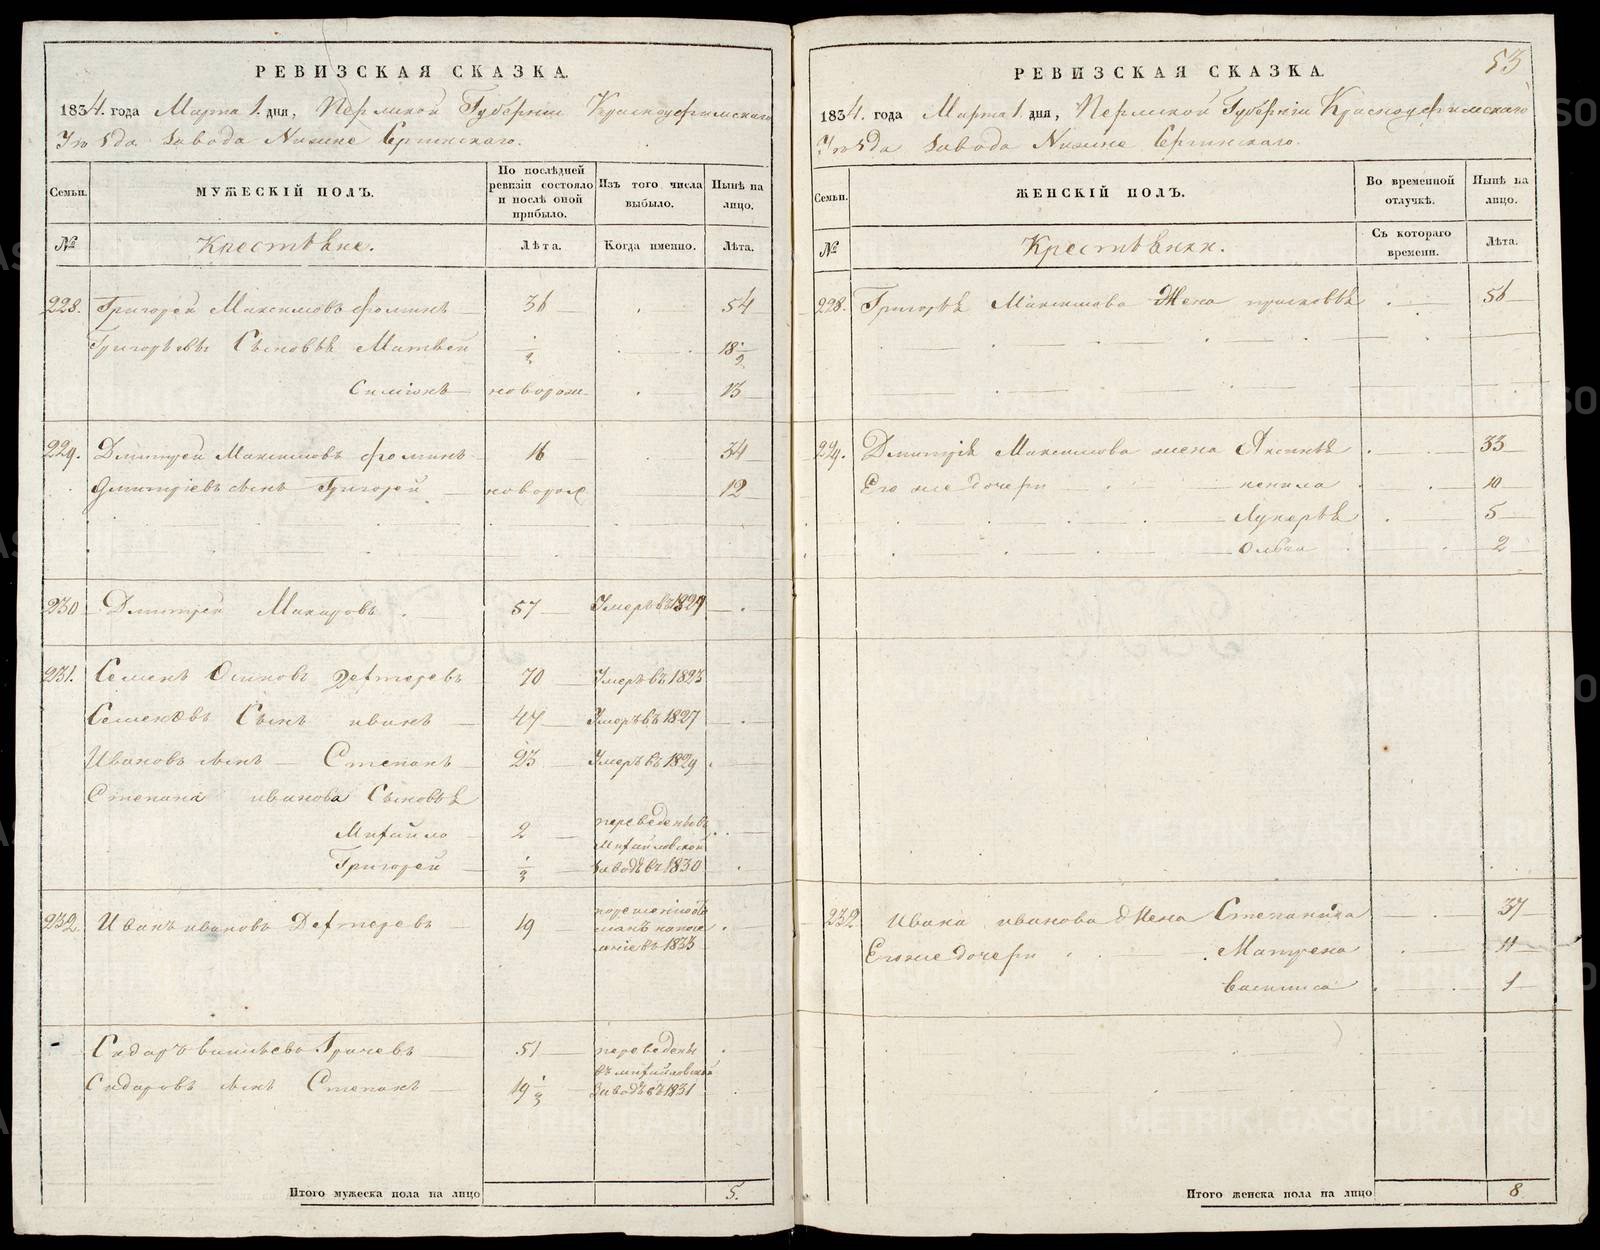 РЕВИЗСКАЯ СКАЗКА.
1834. года Марта 1. дня, Пермской Губернии Красноуфимскаго
Уѣзда Завода Нижне Сергинскаго.
Семьи.
МУЖЕСКІЙ ПОЛЪ.
По послѣдней ревизіи состояло и послѣ оной прибыло.
Изъ того числа выбыло.
Нынѣ на лицо.
№
Крестьяне.
Лѣта.
Когда именно.
Лѣта.
228. Григорей Максимовъ Фоминъ 36 54
Григорьевы Сыновья Матвей ½ 18½
Симіонъ новорож. 13
229. Дмитрей Максимовъ Фоминъ 16 34
Дмитріевъ сынъ Григорей новорож 12
230 Дмитрей Макаровъ 57 Умеръ въ 1829
231. Семенъ Осиповъ Дехтеревъ 70 Умеръ въ 1823
Семеновъ Сынъ иванъ 47 Умеръ въ 1827
Ивановъ сынъ Степанъ 23 Умеръ въ 1829
Степана иванова Сыновья
Михайло 2 переведены въ Михайловской
Григорей ⅓ заводъ въ 1830
232. Иванъ ивановъ Дехтеревъ 19 1833
Сидоръ Грачевъ 51 переведены
въ михайловской
Сидоровъ сынъ Степанъ 19⅓ заводъ въ 1831
Итого мужеска пола на лицо 5.
53
РЕВИЗСКАЯ СКАЗКА.
1834. года Марта 1. дня, Пермской Губерніи Красноуфимскаго
Уѣзда Завода Нижне Сергинскаго.
Семьи.
ЖЕНСКІЙ ПОЛЪ.
Во временной отлучкѣ.
Нынѣ на лицо.
№
Крестьянки.
Съ котораго времени.
Лѣта.
228. Григорья Максимова Жена прасковья 56
229. Дмитрія Максимова жена Аксинья 33
Его же дочери ненила 10
Лукерья 5
Ольга 2
232 Ивана иванова Жена Степанида 37
Его же дочери Матрена 11
Василиса 1
Итого женска пола на лицо 8